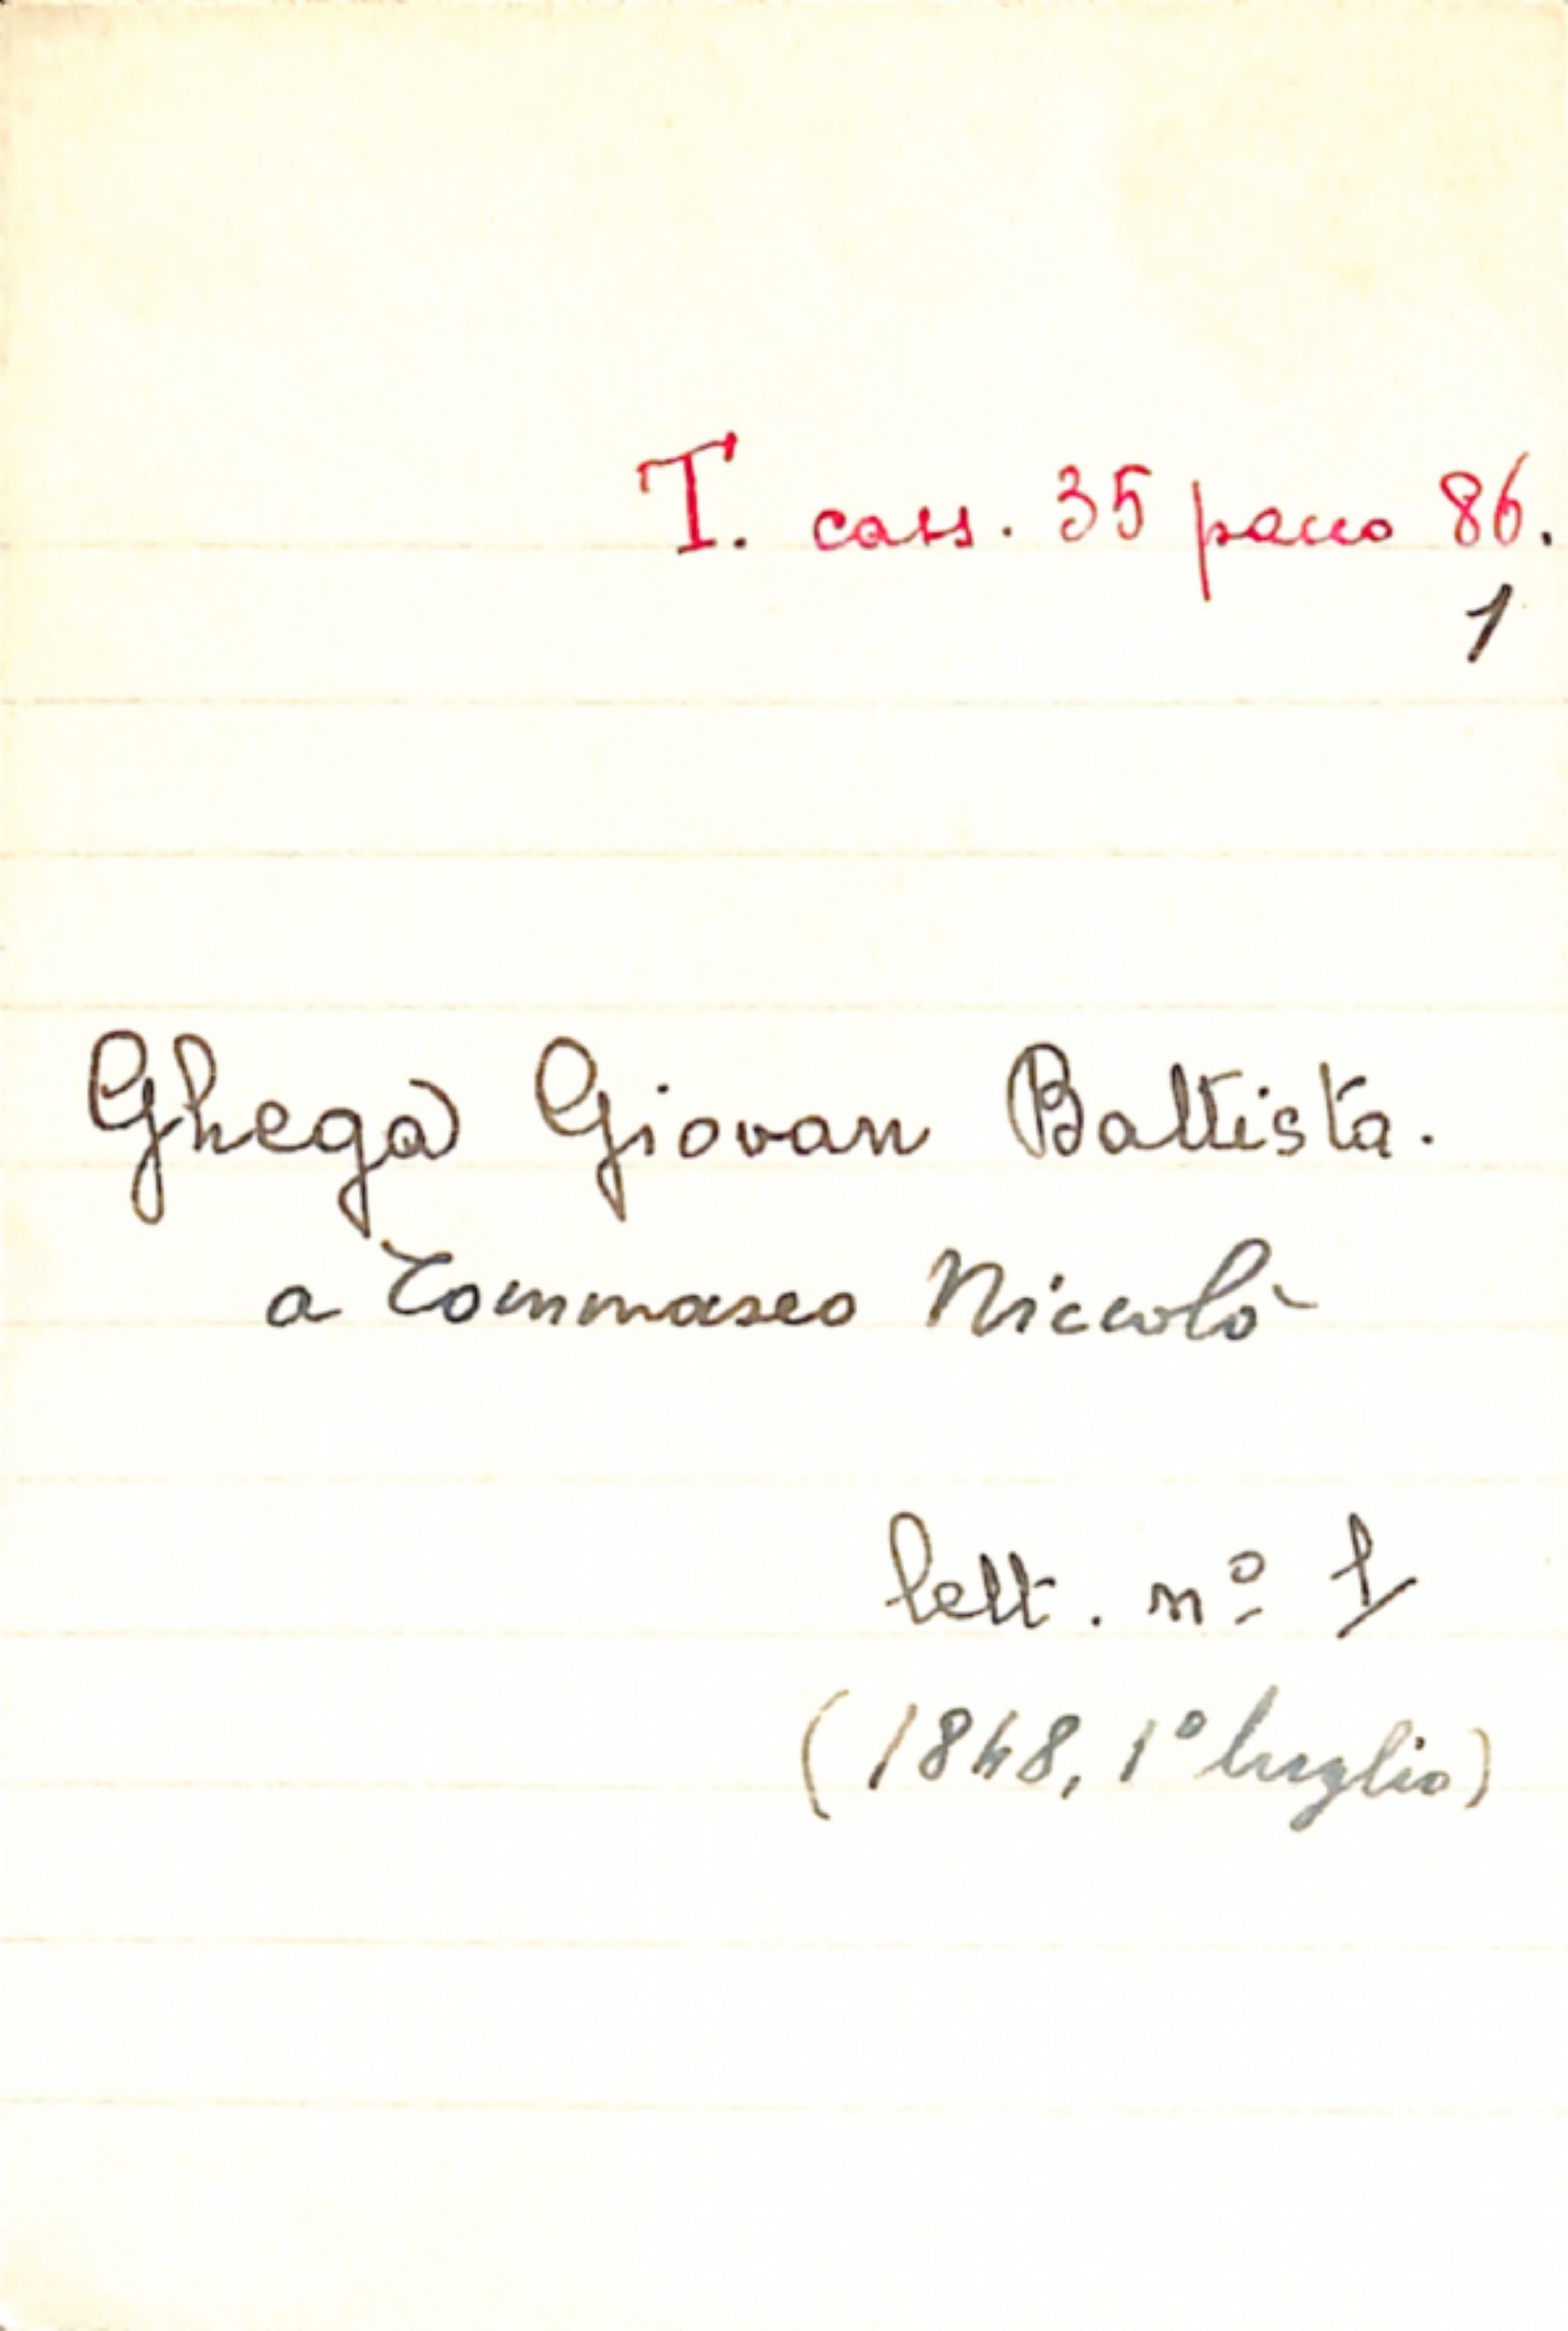 T. cass. 35 pacco 86.
1
Ghega Giovan Battista.
a Tommaseo Niccolò
lett. nº 1
(1848, 1º luglio)